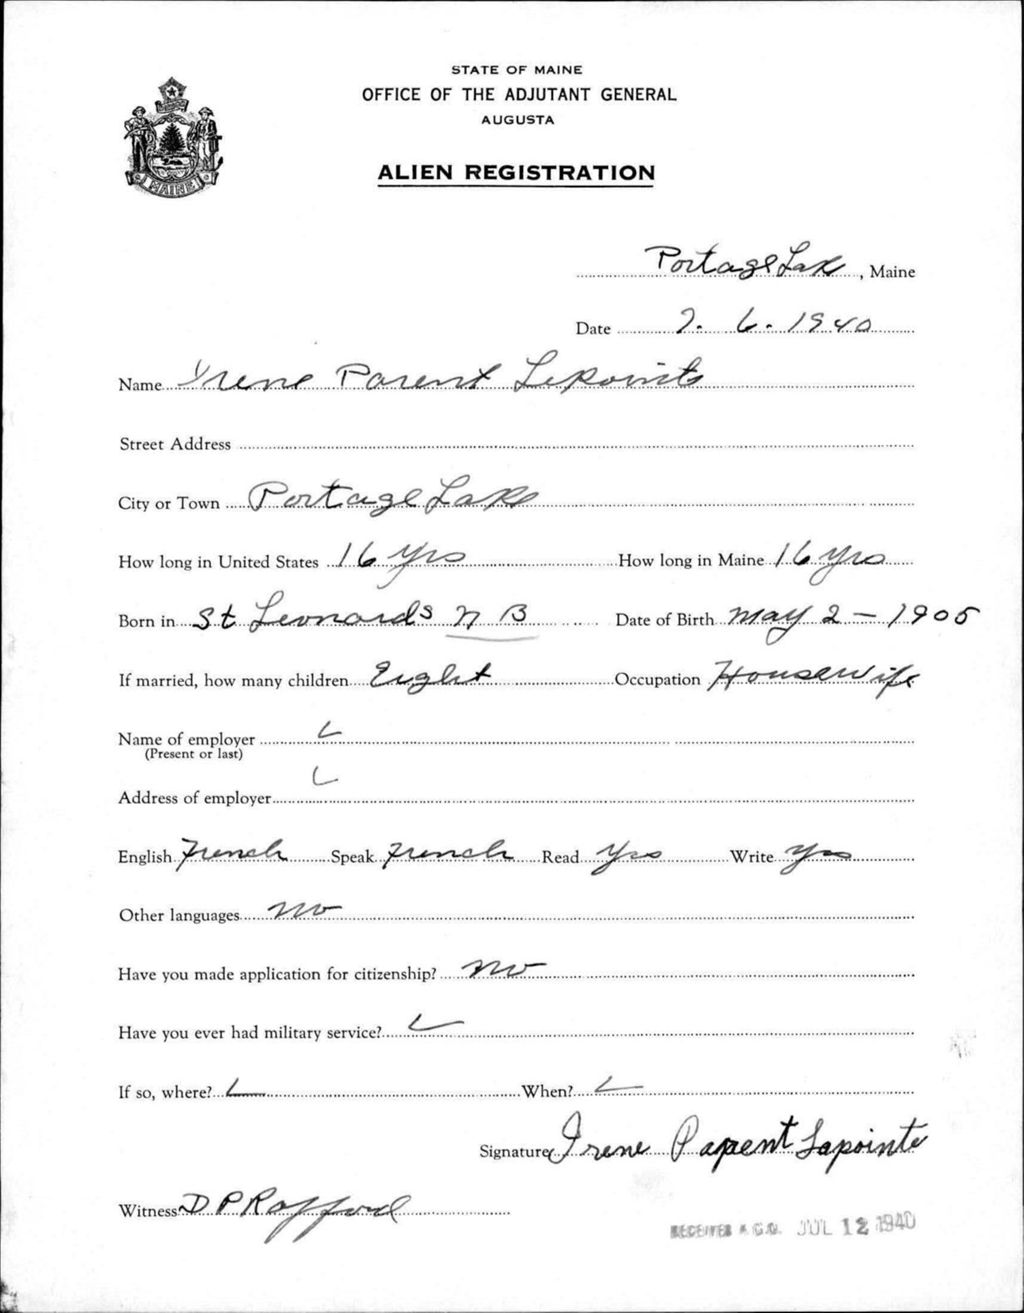 STATE OF MAINE
OFFICE OF THE ADJUTANT GENERAL
AUGUSTA
ALIEN REGISTRATION
MAINE
Portage Lake, Maine
Date 7. 6. 1940
Name Irene Parent Lepointe
Street Address
City or Town Portage Lake
How long in United States 16 yrs How long in Maine 16 yrs
Born in St Leonards N B Date of Birth May 2 - 1905
If married, how many children Eight Occupation Housewife
Name of employer
(Present or last)
Address of employer
English French Speak French Read Yes Write Yes
Other languages no
Have you made application for citizenship? no
Have you ever had military service?
If so, where? When?
Signature Irene Parent Lapointe
Witness D P Rafford
RECEIVED A.G.O. JUL 12 1940